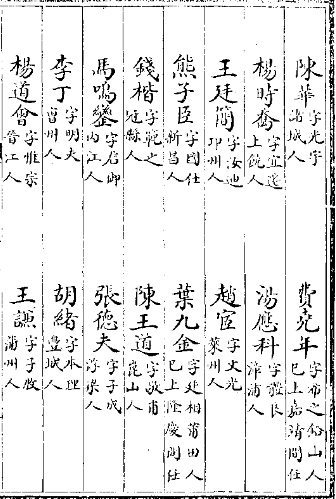 陳華 字光宇 諸城人
費堯年 字希之鉛山人 已上嘉靖間任
楊時喬 字宜遷 上饒人
湯應科 字 漳浦人
王廷簡 字汝迪 邛州人
趙宦 字文光 萊州人
熊子臣 字國任 新昌人
葉九金 字廷相莆田人 已上隆慶間任
錢楷 字範之 冠縣人
陳王道 字敬甫 崑山人
馬鳴鑾 字君御 内江人
張德夫 字子成 浮梁人
李丁 字明夫 曹州人
胡緒 字本理 豐城人
楊道會 字惟宗 晉江人
王謙 字子牧 蒲州人